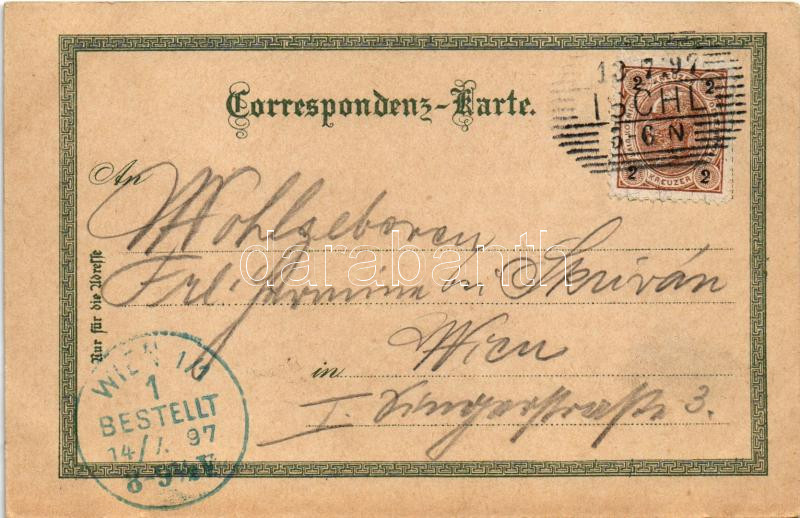 13 7 97
ISCHL
5-6 N
2 KREUZER 2
2 KREUZER 2
Correspondenz-Karte.
An
Wohlgeboren
Frl. Hermine von Skriván
Nur für die Adresse
in Wien
I. Singerstraße 3.
WIEN 1/1
1
BESTELLT
14/7. 97
8-9½V
darabanth